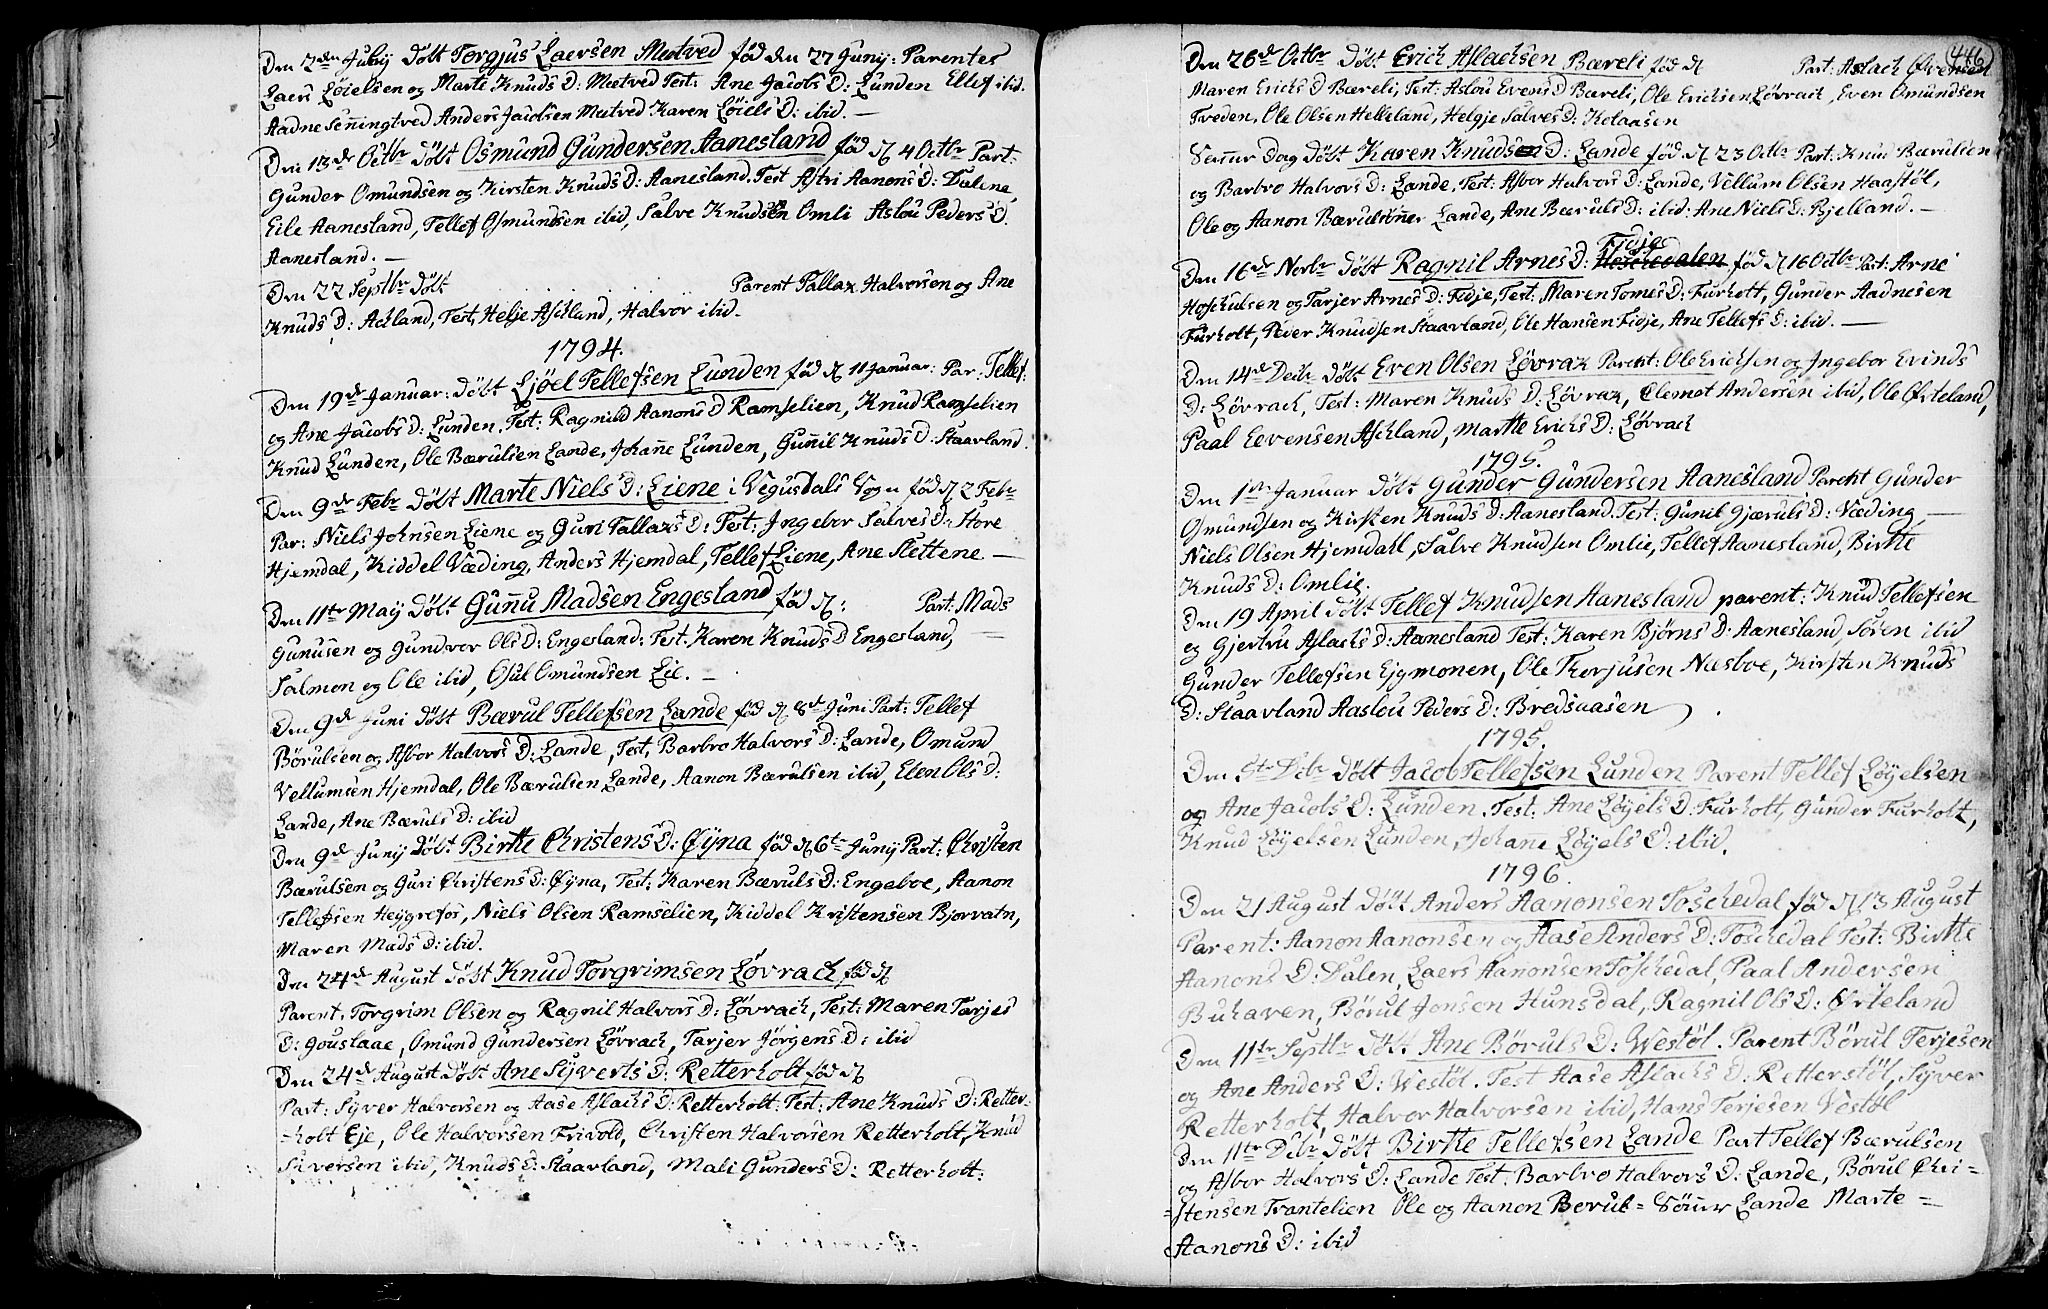 Den 2den July Døbt Torgjus Laersen Mœtved fød den 27 Junij: Parentes
Laers Löielsen og Marte Knuds D: Mœtved Test: Ane Jacobs D: Lunden Ellef ibid.
Aadne Senningtved Anders Jacobsen Mœtved Karen Löiels D: ibid. —
Den 13de Octbr døbt Osmund Gundersen Aanesland fød d 4 Octbr Part:
Gunder Omundsen og Kirsten Knuds D: Aanesland. Test Astri Aanons D: Dalene,
Eile Aanesland, Tellef Osmundsen ibid, Salve Knudsen Omli Aslou Peders D.
Aanesland. —
Den 22 Septbr døbt . . . . . Parent Tallax Halvorsen og Ane
Knuds D: Ackland, Test, Helje Aschland, Halvor ibid.
1794.
Den 19de Januar: døbt Ljöel Tellefsen Lunden fød d 11 Januar: Par: Tellef:
og Ane Jacobs D: Lunden. Test: Ragnild Aanons D Ramselien, Knud Ramselien
Knud Lunden, Ole Bærulsen Lande, Johanne Lunden, Gunnil Knuds D: Staavland.
Den 9de Febr Døbt Marte Niels D: Liene i Vegusdals Sogn fød d 2 Febr
Par: Niels Johnsen Liene og Guri Tallaxs D: Test: Ingebor Salves D: Store
Hjemdal, Kiddel Væding, Anders Hjemdal, Tellef Liene, Ane Slettene —
Den 11te May Døbt Gunnu Madsen Engesland fød d: Part: Mads
Gunusen og Gundvor Ols D: Engesland: Test: Karen Knuds D Engesland, —
Salmon og Ole ibid, Osul Omundsen Eie. —
Den 9de Juni Døbt Bærul Tellefsen Lande fød d 8de Juni Part: Tellef
Börulsen og Asbor Halvors D: Lande, Test, Barbro Halvors D: Lande, Omund
Vellumsen Hjemdal, Ole Bærulsen Lande, Aanon Bærulsen ibid, Elen Ols D:
Lande, Ane Bæruls D: ibid
Den 9de Junij Døbt Birthe Christens D: Öyna fød d 6te Junij Part: Christen
Bærulsen og Guri Christens D: Öyna, Test: Karen Bæruls D: Engeboe, Aanon
Tellefsen Heygrefos, Niels Olsen Ramselien, Kiddel Kristensen Bjorvatn,
Maren Mads D: ibid.
Den 24de August døbt Knud Torgrimsen Lövrach fød d
Parent. Torgrim Olsen og Ragnil Halvors D: Lövrach, Test: Maren Tarjes
D: Gouslaae, Omund Gundersen Lövrach, Tarjer Jörgens D: ibid
Den 24de August Døbt Ane Syverts D: Retterholt fød d
Part: Syver Halvorsen og Aase Aslachs D: Retterholt: Test: Ane Knuds D: Retter-
-holt Eje, Ole Halvorsen Frivold, Christen Halvorsen Retterholt, Knud
Siversen ibid, Knuds D: Staavland, Mali Gunders D: Retterholt:
446
Den 26de Octbr Døbt Erich Aslachsen Bæreli fød d Part: Aslach Evensen
Maren Erichs D Bæreli, Test: Aslou Evens D Bæreli, Ole Erichsen Lövrach, Even Omundsen
Tveden, Ole Olsen Helleland, Helgje Salves D: Kolaasen
Samme Dag Døbt Karen Knuds D: Lande fød d 23 Octbr Part: Knud Bærulsen
og Barbro Halvors D: Lande, Test: Asbor Halvors D: Lande, Vellum Olsen Haastöl,
Ole og Aanon Bærulsönner Lande, Ane Bæruls D: ibid: Ane Niels D: Bjelland. —
Fidje
Den 16de Novbr Døbt Ragnil Arnes D: Hoschedalen fød d 16 Octbr Part: Arne
Hoskulsen og Tarjer Arnes D: Fidje, Test: Maren Tomes D: Furholt, Gunder Aadnesen
Furholt, Peder Knudsen Staavland, Ole Hansen Fidje, Ane Tellefs D: ibid. —
Den 14de Decbr Døbt Even Olsen Lövrax Parent: Ole Erichsen og Ingebor Evinds
D: Lövrach, Test: Maren Knuds D: Lövrax, Clemet Andersen ibid, Ole Örteland,
Paal Eevensen Aschland, Marthe Erichs D: Lövrach
1795.
Den 1ste Januar Døbt Gunder Gundersen Aanesland Parent Gunder
Osmundsen og Kirsten Knuds D: Aanesland. Test: Gunil Gjæruls D: Væding, —
Niels Olsen Hjemdahl, Salve Knudsen Omlie, Tellef Aanesland, Birthe
Knuds D: Omlie.
Den 19 April Døbt Tellef Knudsen Aanesland parent: Knud Tellefsen
og Gjertru Aslachs D: Aanesland Test: Karen Björns D: Aanesland, Sören ibid
Gunder Tellefsen Ejgmonen, Ole Thorjusen Næsboe, Kirsten Knuds
D: Staavland Aaslou Peders D: Bredsaasen
1795.
Den Decbr Døbt Jacob Tellefsen Lunden Parent Tellef Löyelsen
og Ane Jacobs D: Lunden. Test: Ane Löyels D: Furholt, Gunder Furholt,
Knud Löyelsen Lunden, Johanne Löyels D: ibid.
1796.
Den 21 August Døbt Anders Aanonsen Toschedal fød d 13 August
Parent: Aanon Aanonsen og Aase Anders D: Toschedal Test: Birthe
Aanons D: Dalen, Laers Aanonsen Toschedal, Paal Andersen
Buhaven, Börul Jonsen Hunsdal, Ragnil Ols D: Örteland
Den 11te Septbr Døbt Ane Böruls D: Westöl. Parent Börul Terjesen
og Ane Anders D: Westöl. Test Aase Aslachs D: Retterstöl, Syver
Retterholt, Halvor Halvorsen ibid, Hans Terjesen Vestöl
Den 11te Decbr Døbt Birthe Tellefsen Lande Part Tellef Bærulsen
og Asbor Halvors D: Lande Test: Barbro Halvors D: Lande, Börul Chri=
=stensen Trantelien Ole og Aanon Borul= Sönner Lande Marte =
Aanons D: ibid